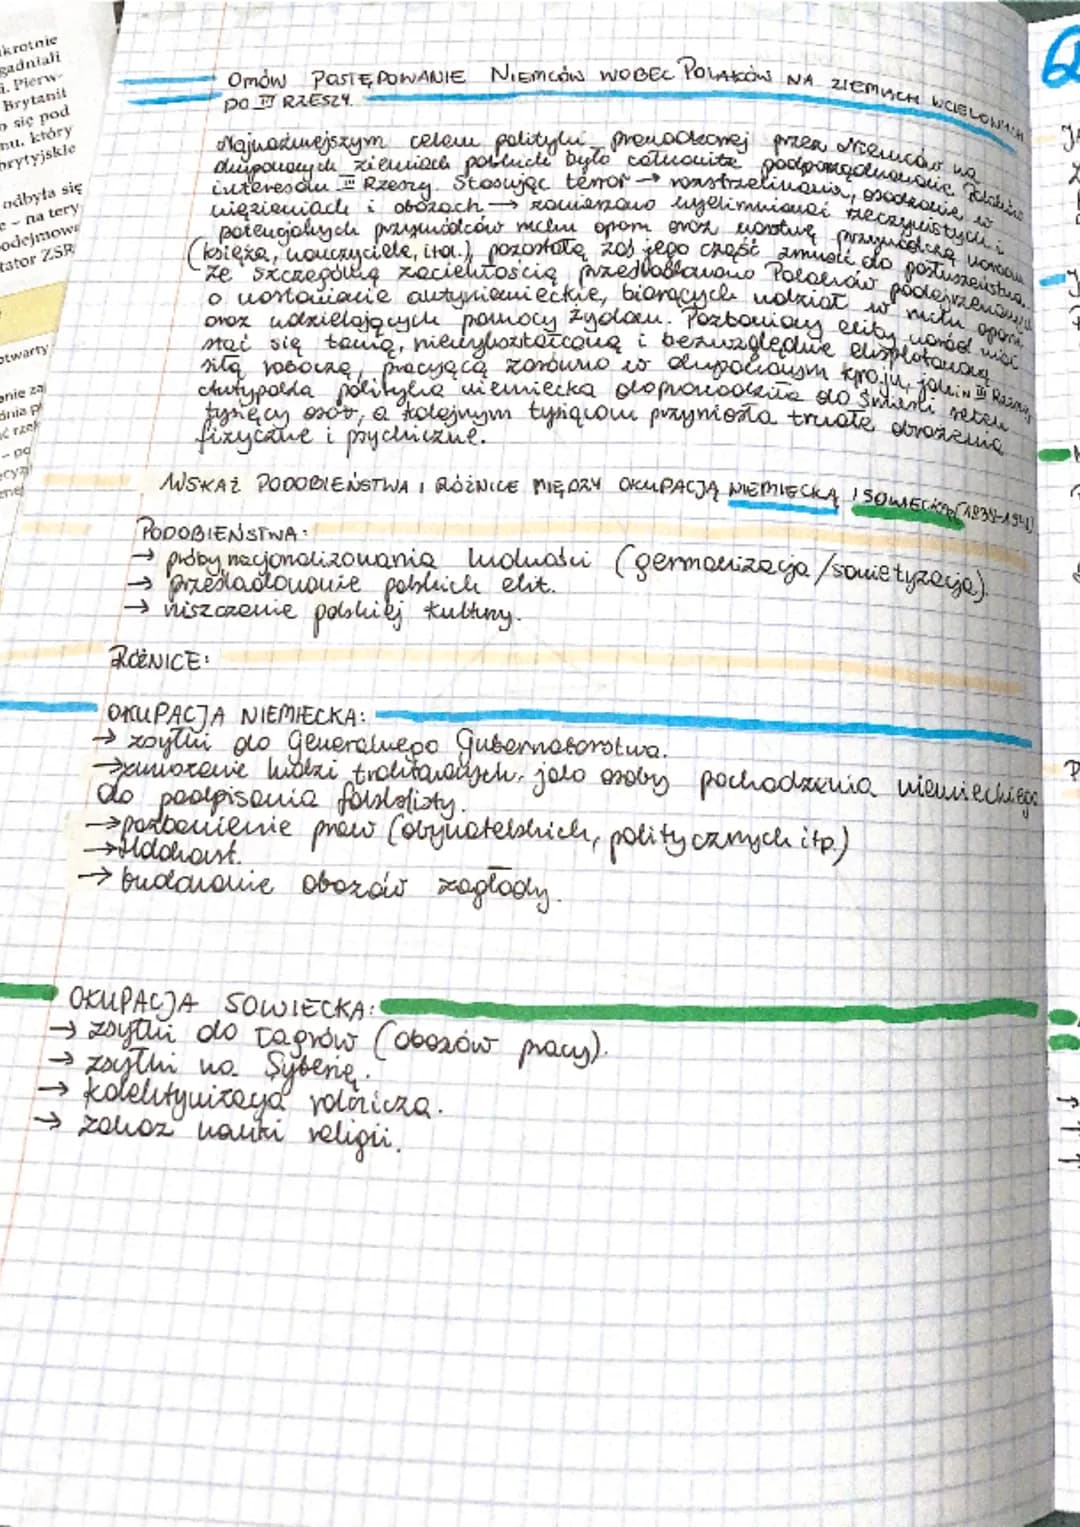 krotnie
gadniali
i. Pierw-
Brytanii
o się pod
mu, który
brytyjskie
odbyła się
e – na tery-
podejmowa
tator ZSR
otwarty
anie za
dnia p
ć rzek
– po
OMÓW POSTĘPOWANIE NIEMCÓW WOBEC POLAKÓW NA ZIEMIACH WCIELONYCH
DO III RZESZY.
Najważniejszym celem polityki prowadzonej przez Niemców na
okupowanych ziemiach polskich było całkowite podporządkowanie Polaków
interesom III Rzeszy. Stosując terror → rozstrzeliwania, osadzanie w
więzieniach i obozach → zamierzano wyeliminować rzeczywistych i
potencjalnych przywódców ruchu oporu oraz warstwę przywódczą narodu
(księża, nauczyciele, itd.), pozostałą zaś jego część zmusić do posłuszeństwa.
Ze szczególną zaciekłością prześladowano Polaków podejrzewanych
o nastawienie antyniemieckie, biorących udział w ruchu oporu
oraz udzielających pomocy Żydom. Pozbawiony elity naród miał
stać się tanią, niewykształconą i bezwzględnie eksploatowaną
siłą roboczą, pracującą zarówno w okupowanym kraju, jak i w III Rzeszy
Antypolska polityka niemiecka doprowadziła do śmierci setek
tysięcy osób, a kolejnym tysiącom przyniosła trwałe obrażenia
fizyczne i psychiczne.
WSKAŻ PODOBIEŃSTWA I RÓŻNICE MIĘDZY OKUPACJĄ NIEMIECKĄ I SOWIECKĄ (1939-1941)
PODOBIEŃSTWA:
→ próby nacjonalizowania ludności (germanizacja/sowietyzacja).
→ prześladowanie polskich elit.
→ niszczenie polskiej kultury.
RÓŻNICE:
OKUPACJA NIEMIECKA:
→ zsyłki do Generalnego Gubernatorstwa.
→ zmuszenie ludzi traktowanych jako osoby pochodzenia niemieckiego
do podpisania folkslisty.
→ pozbawienie praw (obywatelskich, politycznych itp.)
→ Holokaust.
→ budowanie obozów zagłady.
OKUPACJA SOWIECKA:
→ zsyłki do łagrów (obozów pracy).
→ zsyłki na Syberię.
→ kolektywizacja rolnicza.
→ zakaz nauki religii.